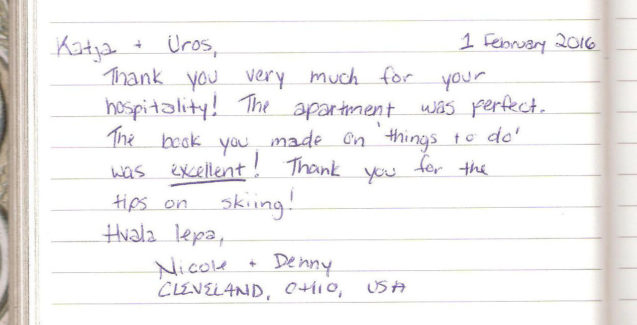 Katja + Uros, 1 February 2016
Thank you very much for your
hospitality! The apartment was perfect.
The book you made on 'things to do'
was excellent! Thank you for the
tips on skiing!
Hvala lepa,
Nicole + Denny
CLEVELAND, OHIO, USA